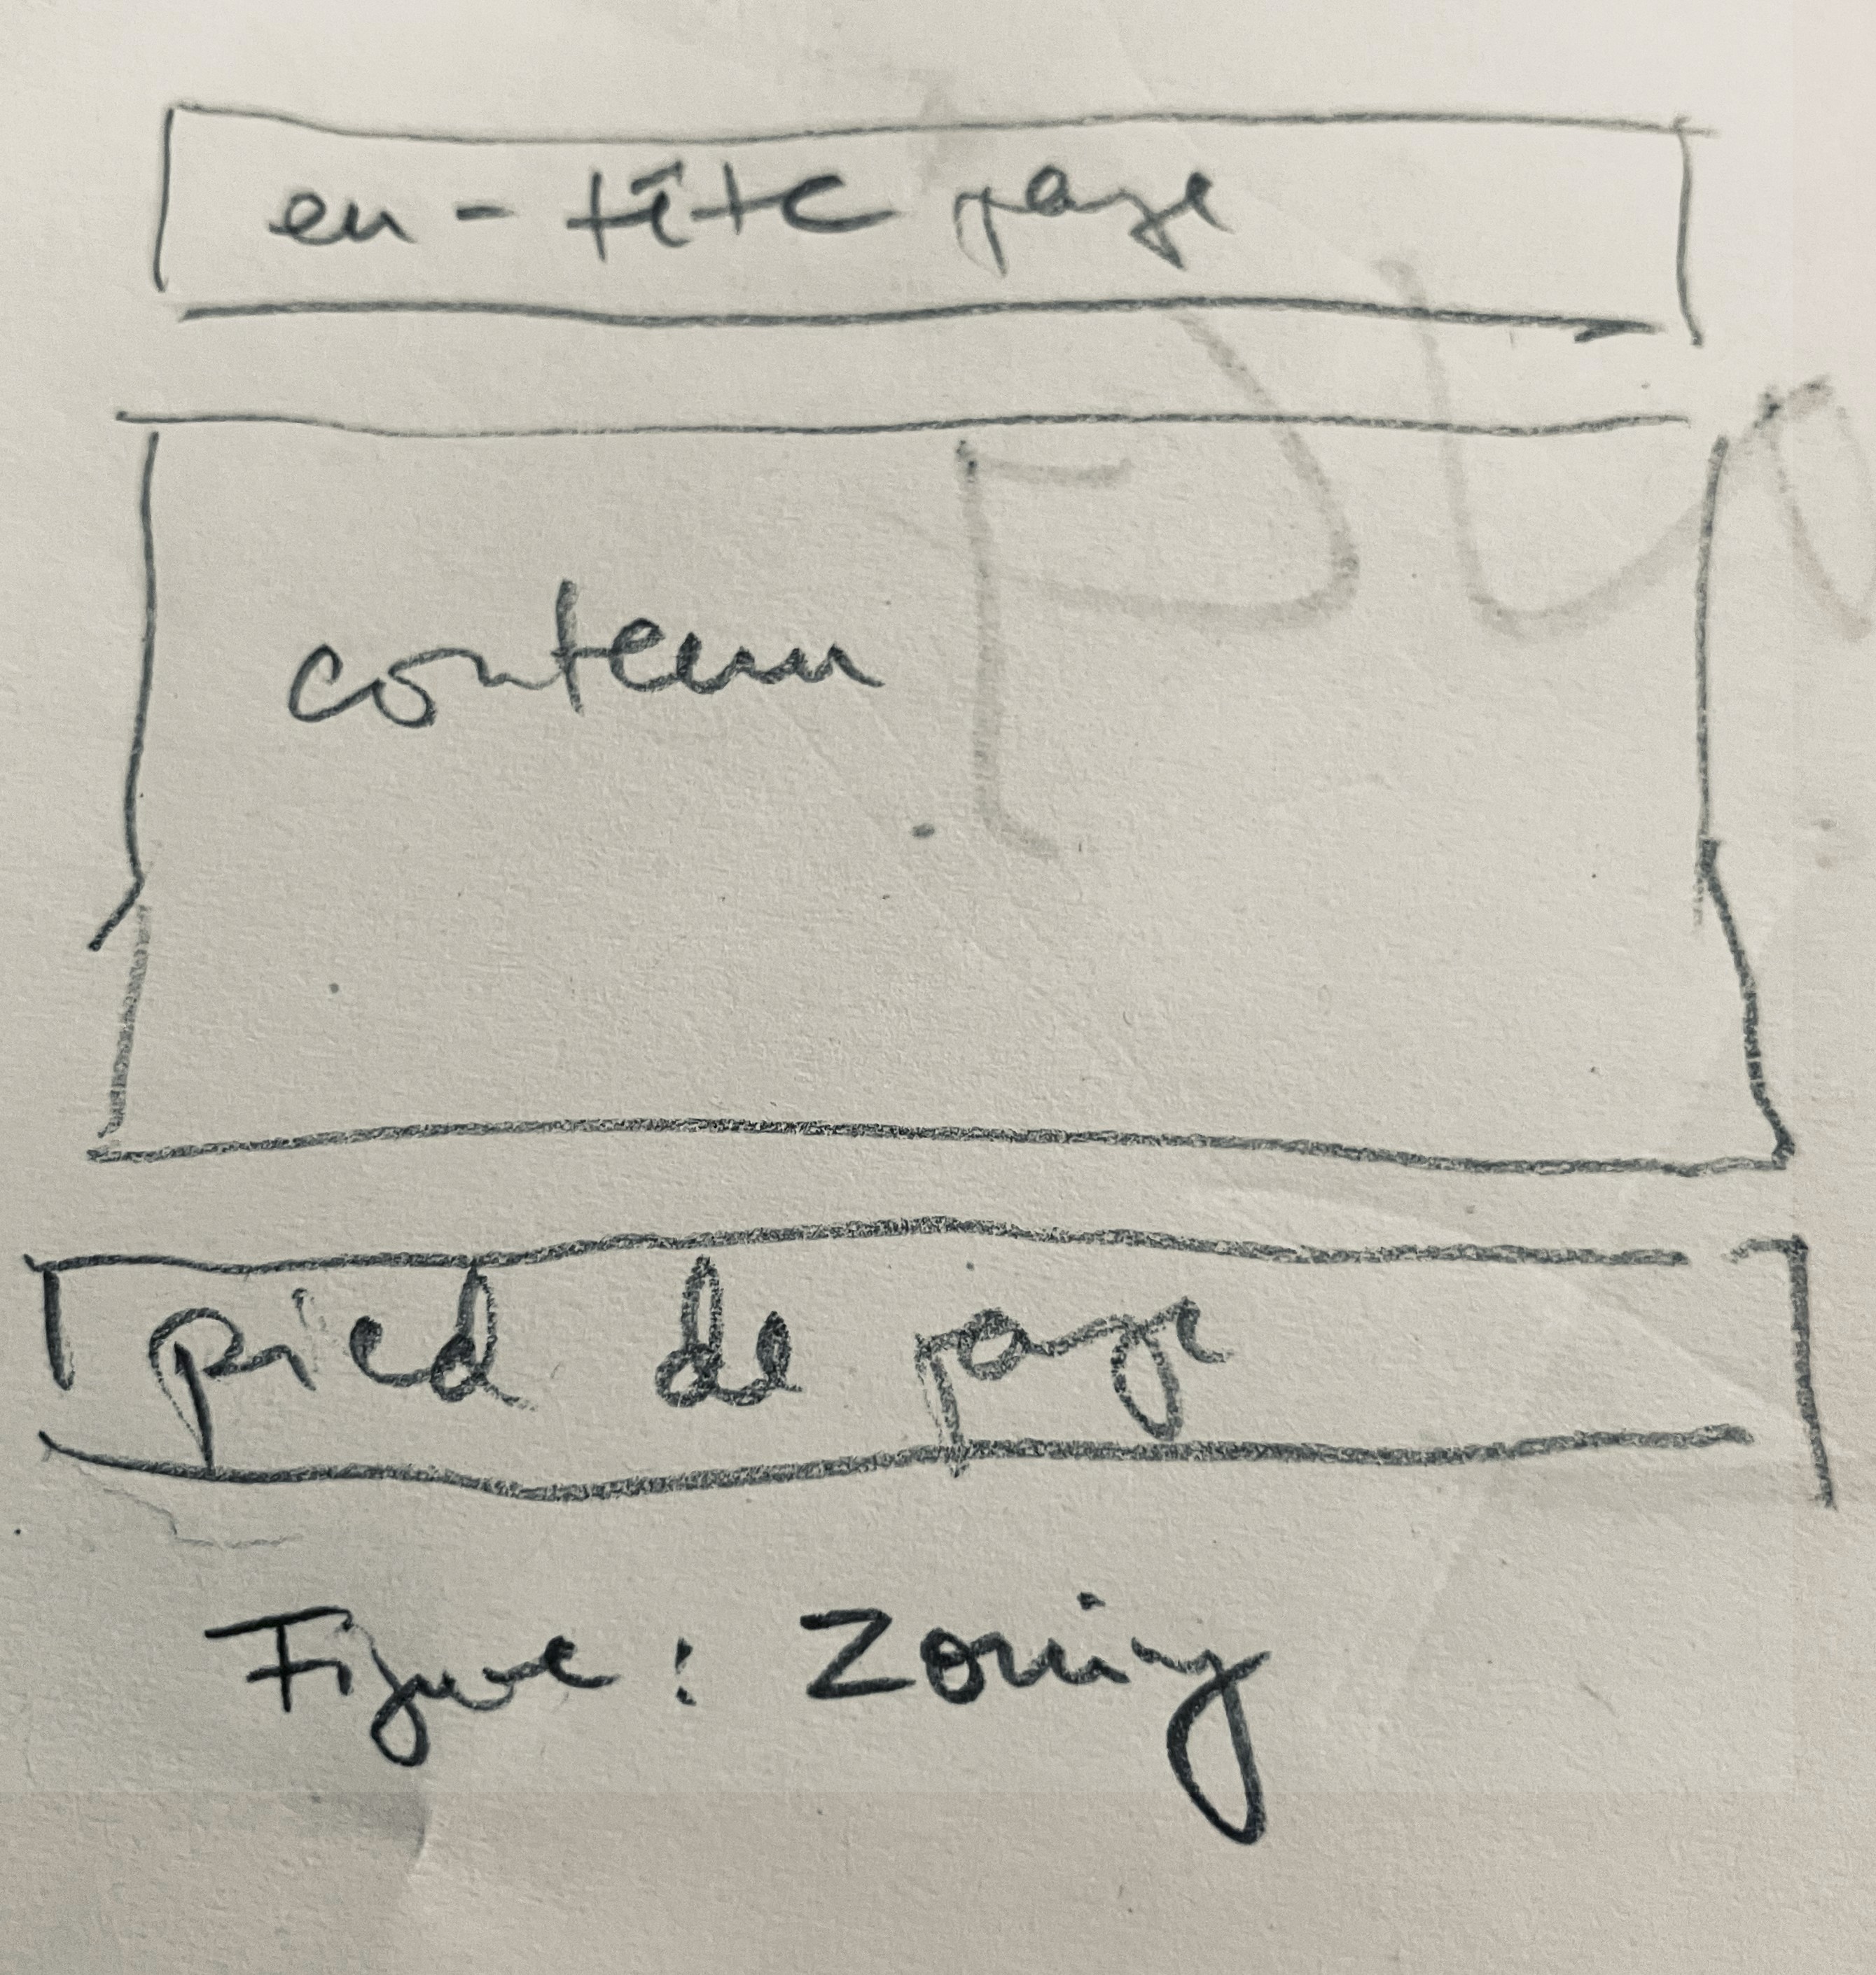 en-tête page
contenu
pied de page
Figure : Zoning